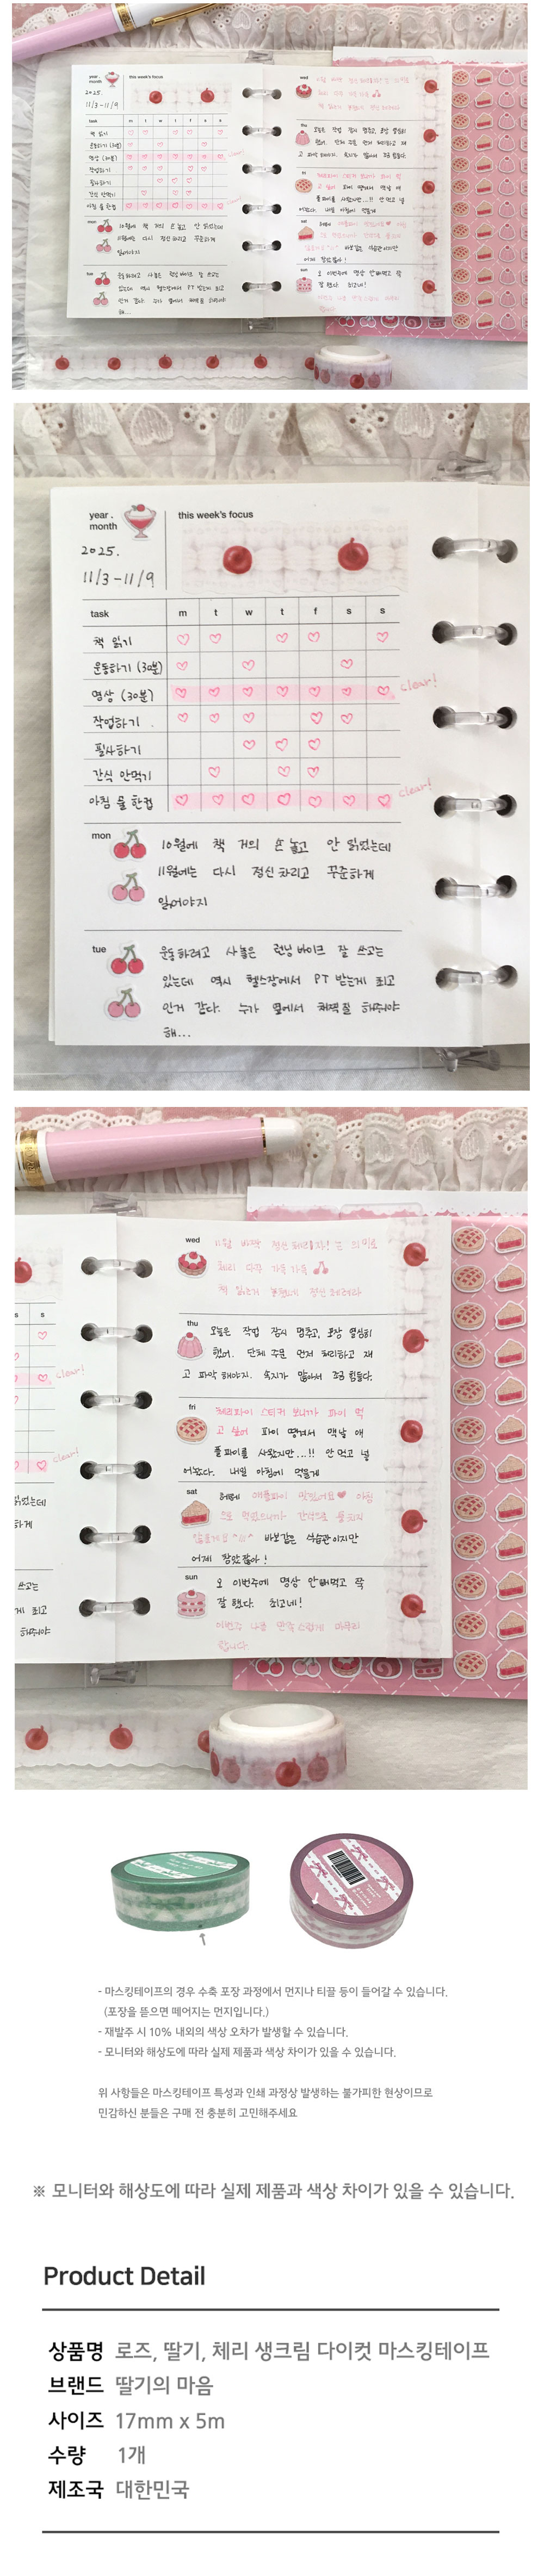 year .
month
this week's focus
2025.
11/3 - 11/9
task m t w t f s s
책 읽기
운동하기 (30분)
명상 (30분)
clear!
작업하기
필사하기
간식 안먹기
아침 물 한컵
clear!
mon
10월에 책 거의 손 놓고 안 읽었는데
11월에는 다시 정신 차리고 꾸준하게
읽어야지
tue
운동하려고 사놓은 런닝 바이크 잘 쓰고는
있는데 역시 헬스장에서 PT 받는게 최고
인거 같다. 누가 옆에서 채찍질 해줘야
해...
wed
thu
오늘은 작업 잠시 멈추고, 포장 열심히
했어. 단체 주문 먼저 처리하고 재
고 파악 해야지. 숙지가 많아서 조금 힘들다.
fri
체리파이 스티커 보니까 파이 먹
고 싶어 파이 땡겨서 맥날 애
플파이를 사왔지만...!! 안 먹고 넣
어놨다. 내일 아침에 먹을게
sat
헤헤 애플파이 맛있어요 ♥ 아침
으로 먹었으니까 간식으로
바보같은 식습관이지만
어제 참았잖아!
sun
오 이번주에 명상 안빼먹고 쭉
잘 했다. 최고네!
이번주 나름 만족스럽게 마무리
합니다.
- 마스킹테이프의 경우 수축 포장 과정에서 먼지나 티끌 등이 들어갈 수 있습니다.
(포장을 뜯으면 떼어지는 먼지입니다.)
- 재발주 시 10% 내외의 색상 오차가 발생할 수 있습니다.
- 모니터와 해상도에 따라 실제 제품과 색상 차이가 있을 수 있습니다.
위 사항들은 마스킹테이프 특성과 인쇄 과정상 발생하는 불가피한 현상이므로
민감하신 분들은 구매 전 충분히 고민해주세요
※ 모니터와 해상도에 따라 실제 제품과 색상 차이가 있을 수 있습니다.
Product Detail
상품명 로즈, 딸기, 체리 생크림 다이컷 마스킹테이프
브랜드 딸기의 마음
사이즈 17mm x 5m
수량 1개
제조국 대한민국